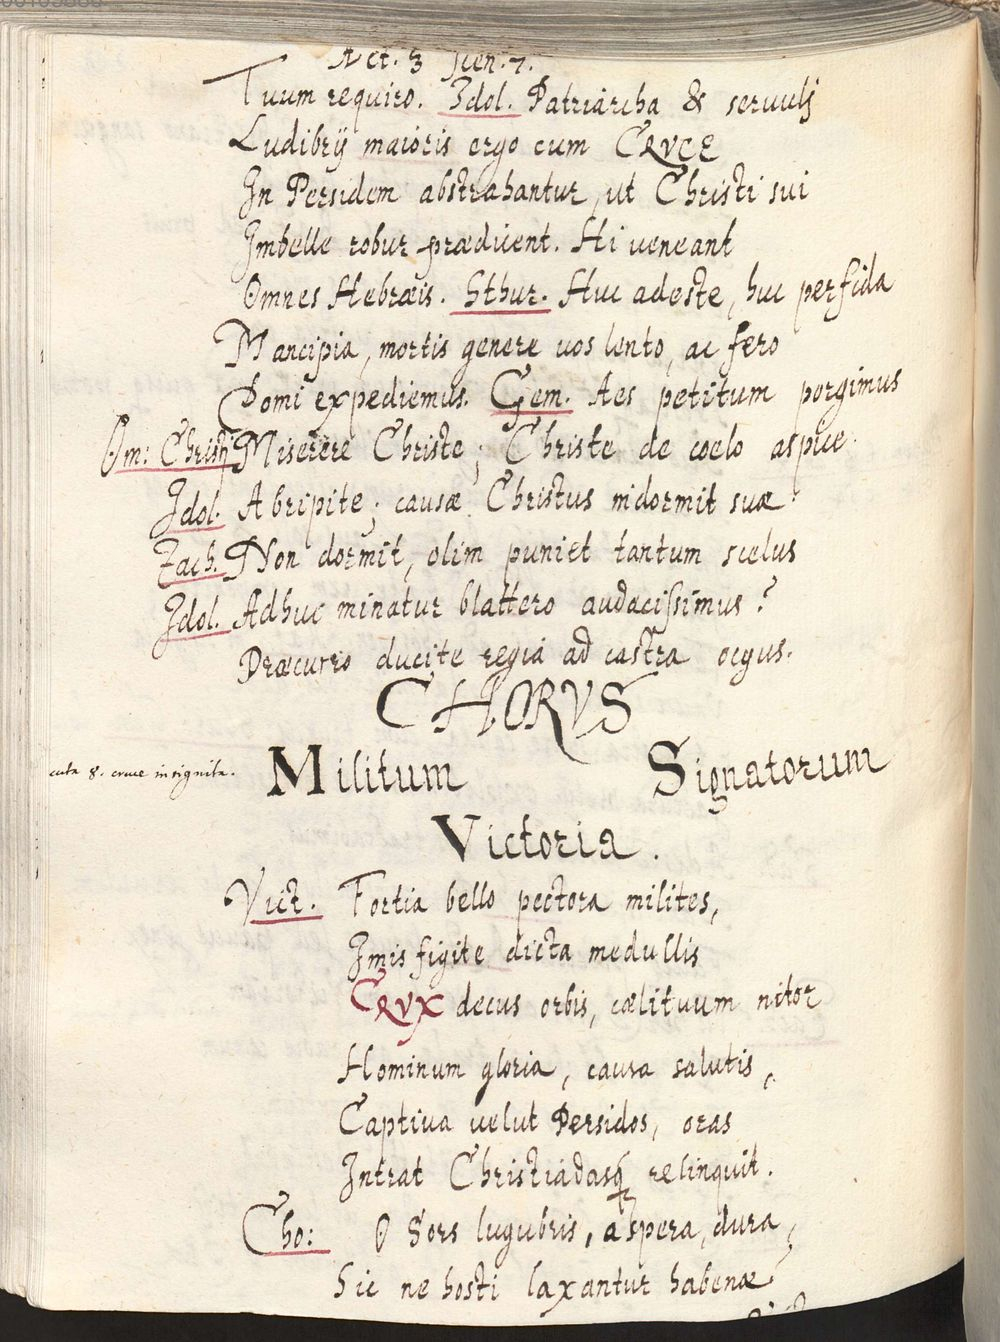 Act. 3 Scen. 7.
Tuum requiro. Idol. Patriarcha & seruulj
Ludibrÿ maioris ergo cum CRVCE
In Persidem abstrahantur, ut Christi sui
Imbelle robur prædicent. Hi ueneant
Omnes Hebræis. Sthur. Huc adeste, huc perfida
Mancipia, mortis genere uos lento, ac fero
Domi expediemus. Gem. Aes petitum porgimus
Om: Christj Miserere Christe; Christe de coelo aspice.
Idol. Abripite; causæ Christus indormit suæ.
Zach. Non dormit, olim puniet tantum scelus
Idol. Adhuc minatur blattero audacissimus?
Præcurro ducite regia ad castra ocyus.
CHORVS
Militum Signatorum
cuta 8. cruce insignita.
Victoria.
Vict. Fortia bello pectora milites,
Imis figite dicta medullis
CRVX decus orbis, cælituum nitor
Hominum gloria, causa salutis,
Captiua uelut Persidos, oras
Intrat Christiadasq relinquit.
Cho: O Sors lugubris, aspera, dura,
Sic ne hosti laxantur habenæ